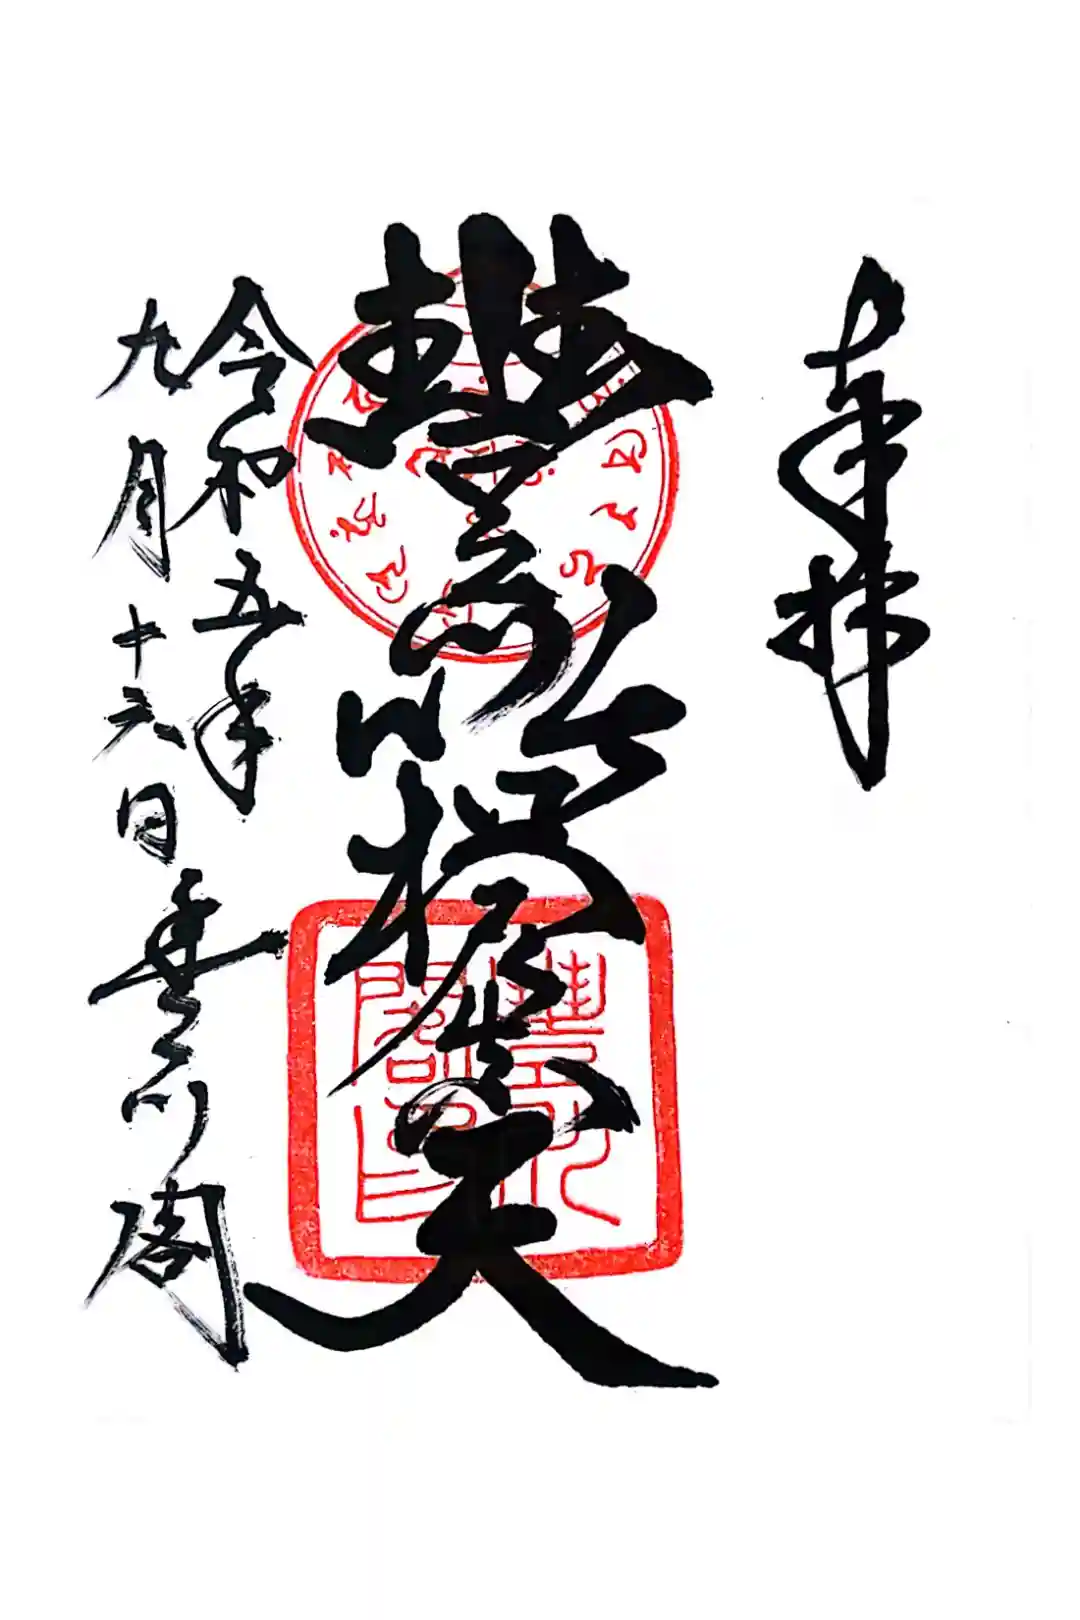 奉拝
豐川吒枳尼眞天
令和五年
九月十六日 豊川閣
豐川
閣印